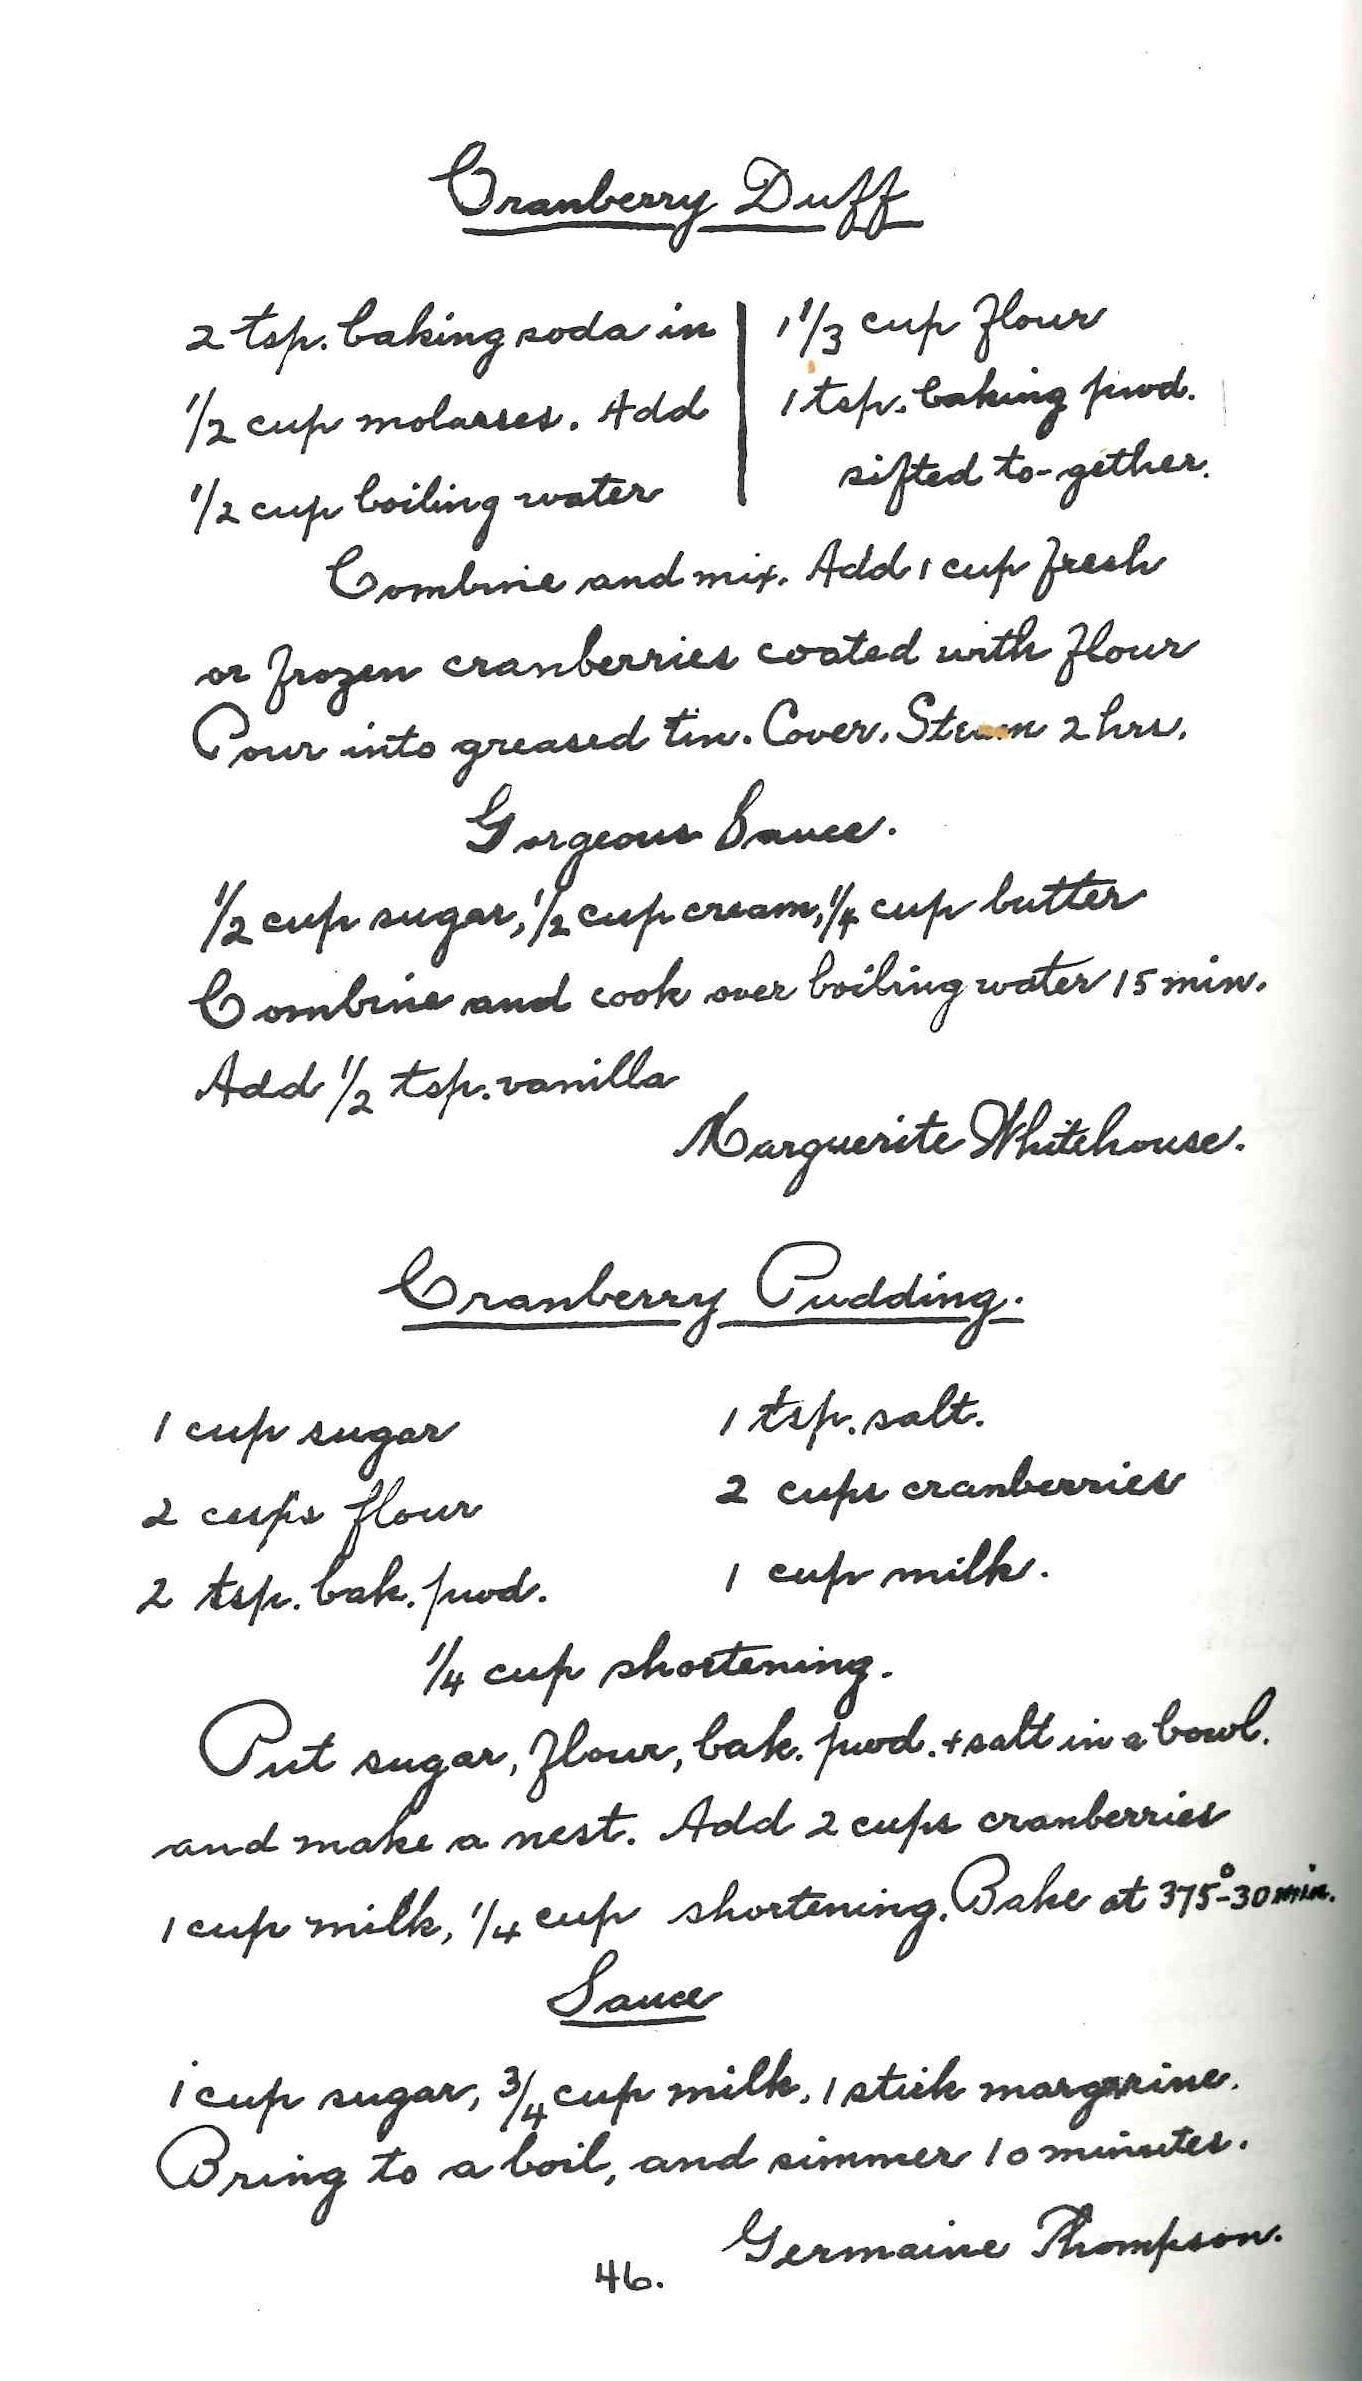 Cranberry Duff
2 tsp. baking soda in
1/2 cup molasses. Add
1/2 cup boiling water
1 1/3 cup flour
1 tsp. baking pwd.
sifted to-gether.
Combine and mix. Add 1 cup fresh
or frozen cranberries coated with flour
Pour into greased tin. Cover. Steam 2 hrs.
Gorgeous Sauce.
1/2 cup sugar, 1/2 cup cream, 1/4 cup butter
Combine and cook over boiling water 15 min.
Add 1/2 tsp. vanilla
Marguerite Whitehouse.
Cranberry Pudding.
1 cup sugar
2 cups flour
2 tsp. bak. pwd.
1 tsp. salt.
2 cups cranberries
1 cup milk.
1/4 cup shortening.
Put sugar, flour, bak. pwd. + salt in a bowl.
and make a nest. Add 2 cups cranberries
1 cup milk, 1/4 cup shortening. Bake at 375°-30 min.
Sauce
1 cup sugar, 3/4 cup milk, 1 stick margarine.
Bring to a boil, and simmer 10 minutes.
Germaine Thompson.
46.